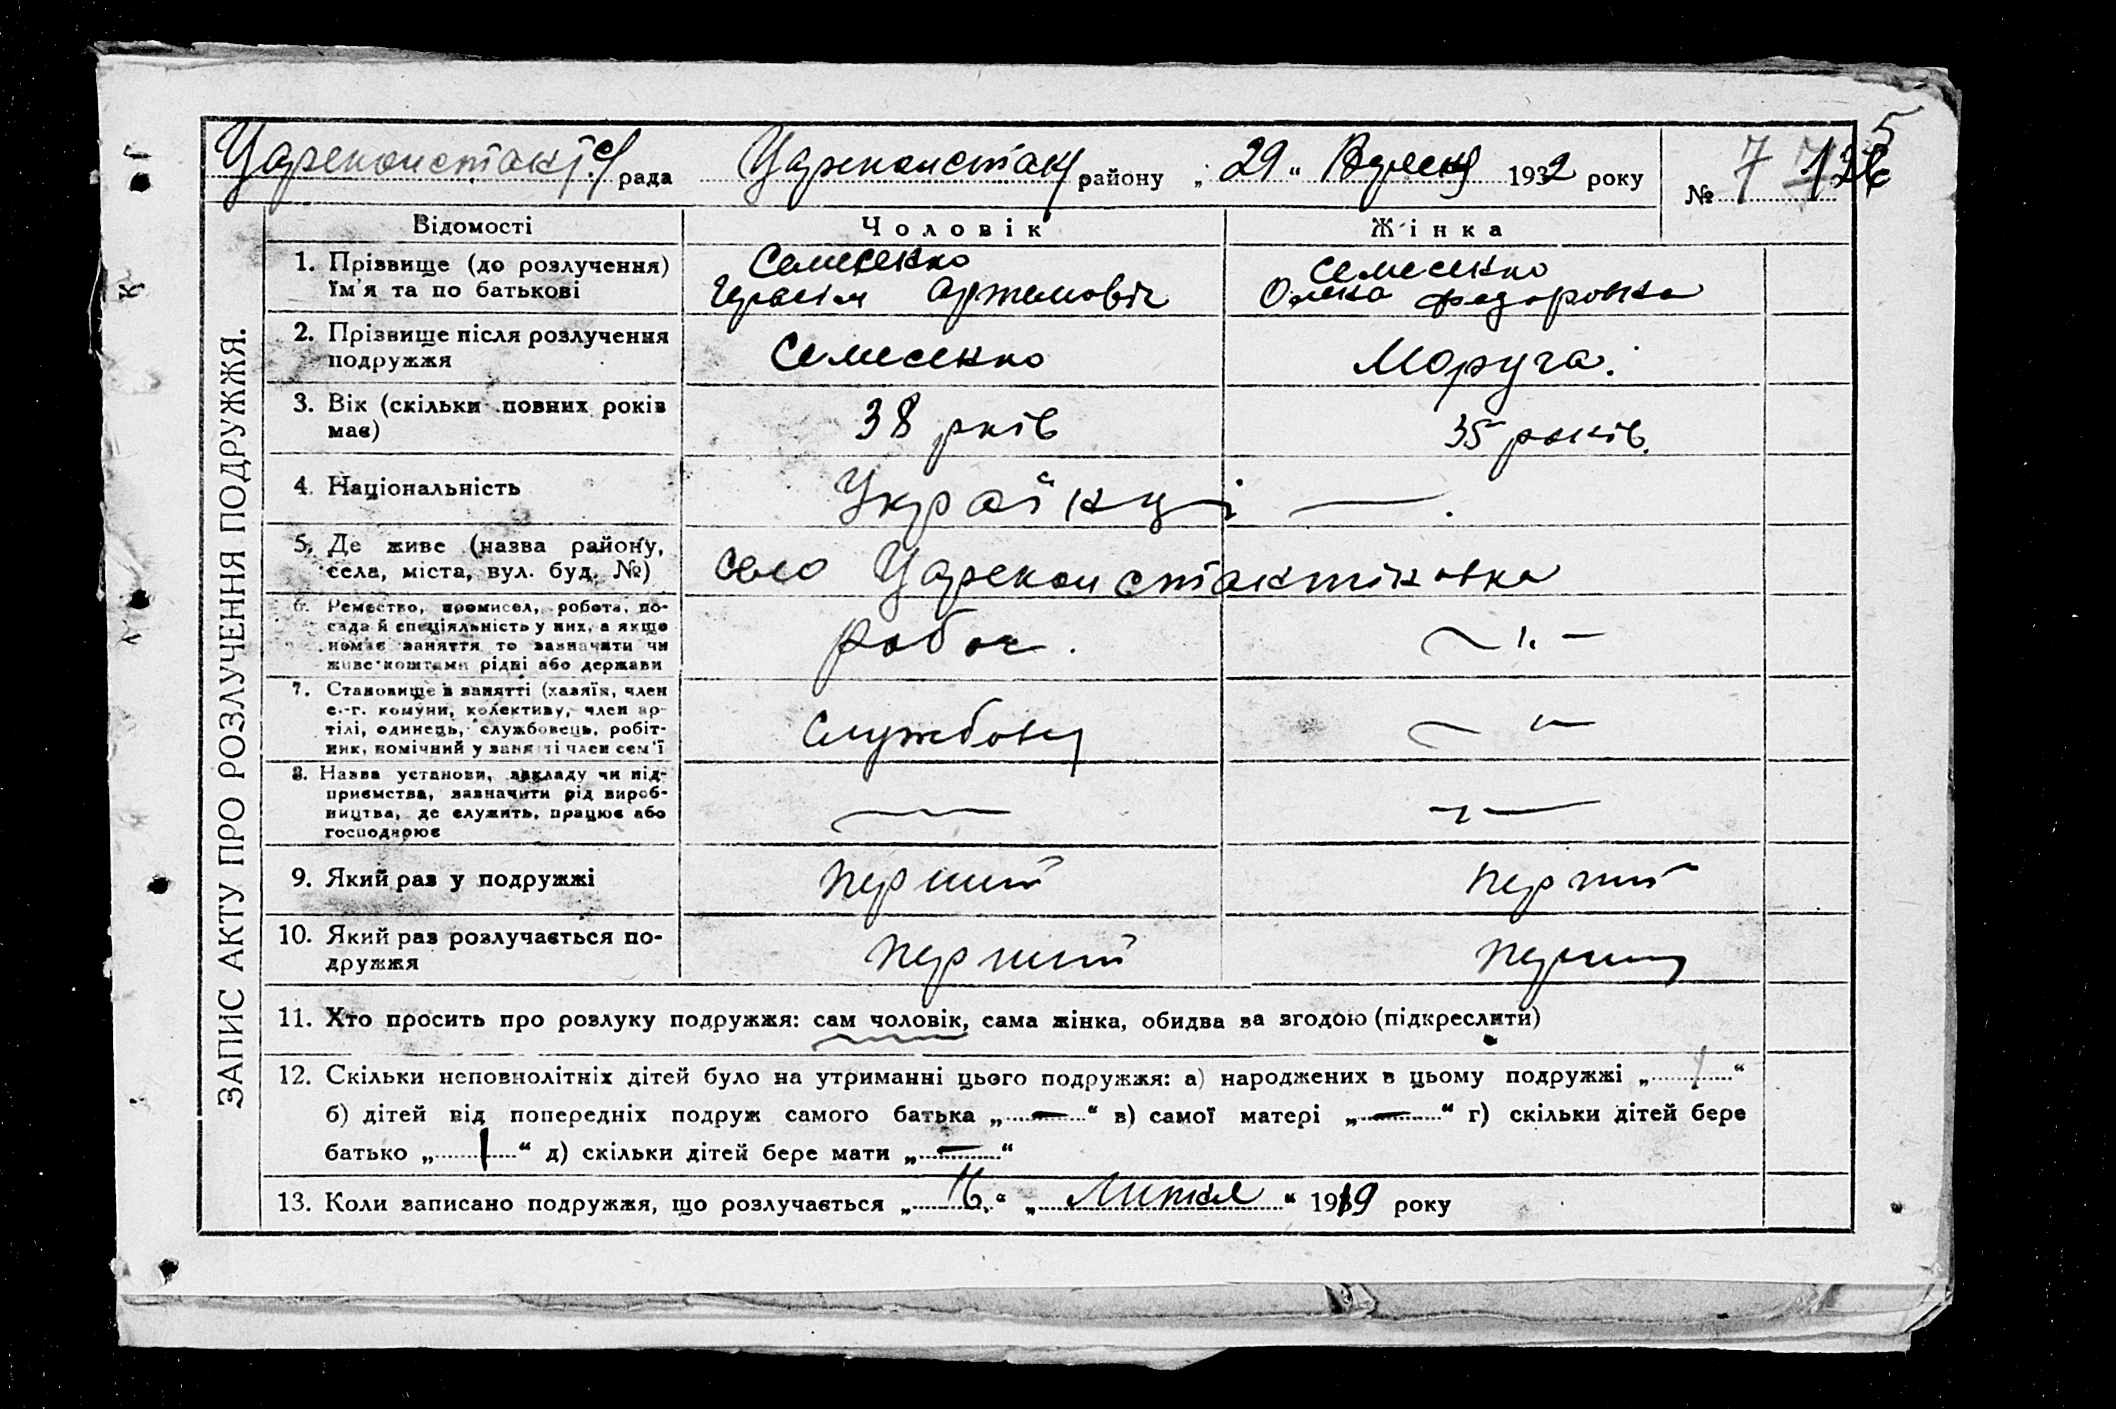 5
Цареконстант. с/рада Цареконстант району „ 29 “ Вересня 1932 року № 7 126
Відомості Чоловік Жінка
1. Прізвище (до розлучення) Семесенко Семесенко
їм'я та по батькові Герасім Артемовіч Олена Федоровна
2. Прізвище після розлучення
подружжя Семесенко Моруга.
3. Вік (скільки повних років
має) 38 рків 35 років.
4. Національність Українці — .
5. Де живе (назва району,
села, міста, вул. буд. №) село Цареконстантіновка
6. Ремество, промисел, робота, по-
сада й спеціяльність у них, а якщо
немає заняття то зазначити чи
живе коштами рідні або держави робоч. — „ —
7. Становище в занятті (хазяїн, член
с.-г. комуни, колективу, член ар-
тілі, одинець, службовець, робіт-
ник, помічний у занятті член сем'ї Службовец — „ —
8. Назва установи, закладу чи під-
приємства, зазначити рід вироб-
ництва, де служить, працює або
господарює — —
9. Який раз у подружжі перший перший
10. Який раз розлучається по-
дружжя перший перший
11. Хто просить про розлуку подружжя: сам чоловік, сама жінка, обидва за згодою (підкреслити)
12. Скільки неповнолітніх дітей було на утриманні цього подружжя: а) народжених в цьому подружжі „ 1 “
б) дітей від попередніх подруж самого батька „ — “ в) самої матері „ — “ г) скільки дітей бере
батько „ 1 “ д) скільки дітей бере мати „ — “
13. Коли записано подружжя, що розлучається „ 16. “ „ “ 1919 року
ЗАПИС АКТУ ПРО РОЗЛУЧЕННЯ ПОДРУЖЖЯ.